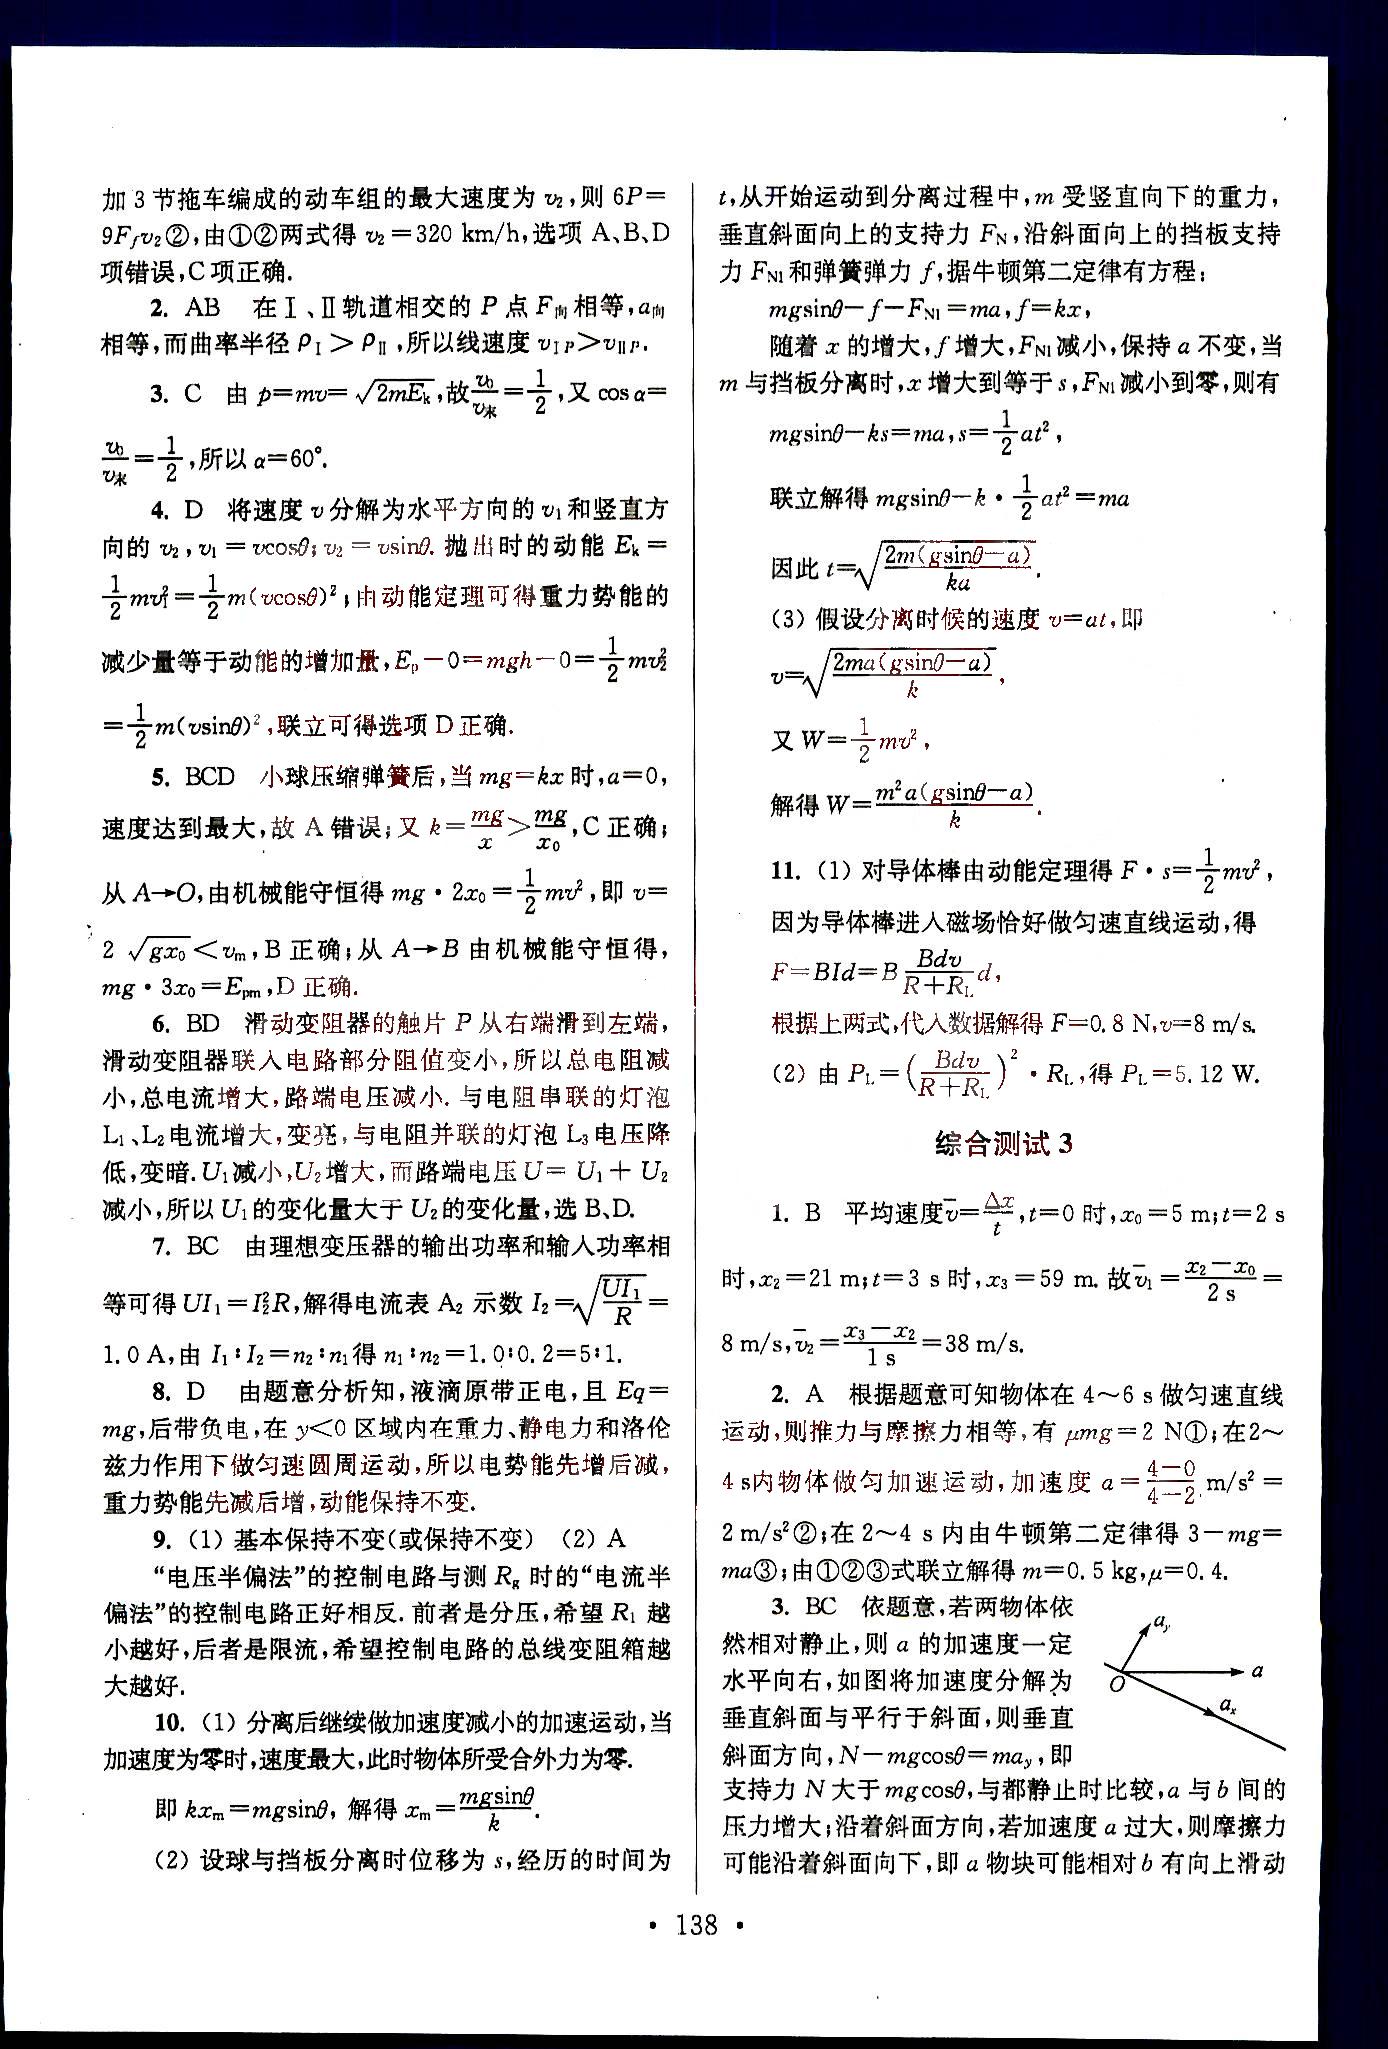 加 3 节拖车编成的动车组的最大速度为 v₂,则 6P=
9F_f v₂②,由①②两式得 v₂=320 km/h,选项 A、B、D
项错误,C 项正确.
2. AB 在Ⅰ、Ⅱ轨道相交的 P 点 F向相等,a向
相等,而曲率半径 ρ_Ⅰ>ρ_Ⅱ,所以线速度 v_ⅠP>v_ⅡP.
3. C 由 p=mv=√(2mE_k),故 v₀/v末=1/2,又 cos α=
v₀/v末=1/2,所以 α=60°.
4. D 将速度 v 分解为水平方向的 v₁ 和竖直方
向的 v₂,v₁=vcosθ;v₂=vsinθ. 抛出时的动能 E_k=
1/2 mv₁²=1/2 m(vcosθ)²;由动能定理可得重力势能的
减少量等于动能的增加量,E_p-0=mgh-0=1/2 mv₂²
=1/2 m(vsinθ)²,联立可得选项 D 正确.
5. BCD 小球压缩弹簧后,当 mg=kx 时,a=0,
速度达到最大,故 A 错误;又 k=mg/x>mg/x₀,C 正确;
从 A→O,由机械能守恒得 mg·2x₀=1/2 mv²,即 v=
2√(gx₀)<v_m,B 正确;从 A→B 由机械能守恒得,
mg·3x₀=E_pm,D 正确.
6. BD 滑动变阻器的触片 P 从右端滑到左端,
滑动变阻器联入电路部分阻值变小,所以总电阻减
小,总电流增大,路端电压减小. 与电阻串联的灯泡
L₁、L₂ 电流增大,变亮,与电阻并联的灯泡 L₃ 电压降
低,变暗. U₁ 减小,U₂ 增大,而路端电压 U=U₁+U₂
减小,所以 U₁ 的变化量大于 U₂ 的变化量,选 B、D.
7. BC 由理想变压器的输出功率和输入功率相
等可得 UI₁=I₂²R,解得电流表 A₂ 示数 I₂=√(UI₁/R)=
1.0 A,由 I₁∶I₂=n₂∶n₁ 得 n₁∶n₂=1.0∶0.2=5∶1.
8. D 由题意分析知,液滴原带正电,且 Eq=
mg,后带负电,在 y<0 区域内在重力、静电力和洛伦
兹力作用下做匀速圆周运动,所以电势能先增后减,
重力势能先减后增,动能保持不变.
9. (1) 基本保持不变(或保持不变) (2) A
“电压半偏法”的控制电路与测 R_g 时的“电流半
偏法”的控制电路正好相反. 前者是分压,希望 R₁ 越
小越好,后者是限流,希望控制电路的总线变阻箱越
大越好.
10. (1) 分离后继续做加速度减小的加速运动,当
加速度为零时,速度最大,此时物体所受合外力为零.
即 kx_m=mgsinθ, 解得 x_m=mgsinθ/k.
(2) 设球与挡板分离时位移为 s,经历的时间为
t,从开始运动到分离过程中,m 受竖直向下的重力,
垂直斜面向上的支持力 F_N,沿斜面向上的挡板支持
力 F_N1 和弹簧弹力 f,据牛顿第二定律有方程:
mgsinθ-f-F_N1=ma,f=kx,
随着 x 的增大,f 增大,F_N1 减小,保持 a 不变,当
m 与挡板分离时,x 增大到等于 s,F_N1 减小到零,则有
mgsinθ-ks=ma,s=1/2 at²,
联立解得 mgsinθ-k·1/2 at²=ma
因此 t=√(2m(gsinθ-a)/ka).
(3) 假设分离时候的速度 v=at,即
v=√(2ma(gsinθ-a)/k),
又 W=1/2 mv²,
解得 W=m²a(gsinθ-a)/k.
11. (1) 对导体棒由动能定理得 F·s=1/2 mv²,
因为导体棒进入磁场恰好做匀速直线运动,得
F=BId=B Bdv/(R+R_L) d,
根据上两式,代入数据解得 F=0.8 N,v=8 m/s.
(2) 由 P_L=(Bdv/(R+R_L))²·R_L,得 P_L=5.12 W.
综合测试 3
1. B 平均速度 v̄=Δx/t,t=0 时,x₀=5 m;t=2 s
时,x₂=21 m;t=3 s 时,x₃=59 m. 故 v̄₁=(x₂-x₀)/2 s=
8 m/s,v̄₂=(x₃-x₂)/1 s=38 m/s.
2. A 根据题意可知物体在 4～6 s 做匀速直线
运动,则推力与摩擦力相等,有 μmg=2 N①;在2～
4 s内物体做匀加速运动,加速度 a=(4-0)/(4-2) m/s²=
2 m/s²②;在 2～4 s 内由牛顿第二定律得 3-mg=
ma③;由①②③式联立解得 m=0.5 kg,μ=0.4.
3. BC 依题意,若两物体依
然相对静止,则 a 的加速度一定
水平向右,如图将加速度分解为
垂直斜面与平行于斜面,则垂直
斜面方向,N-mgcosθ=ma_y,即
a_y
a
O
a_x
支持力 N 大于 mgcosθ,与都静止时比较,a 与 b 间的
压力增大;沿着斜面方向,若加速度 a 过大,则摩擦力
可能沿着斜面向下,即 a 物块可能相对 b 有向上滑动
· 138 ·